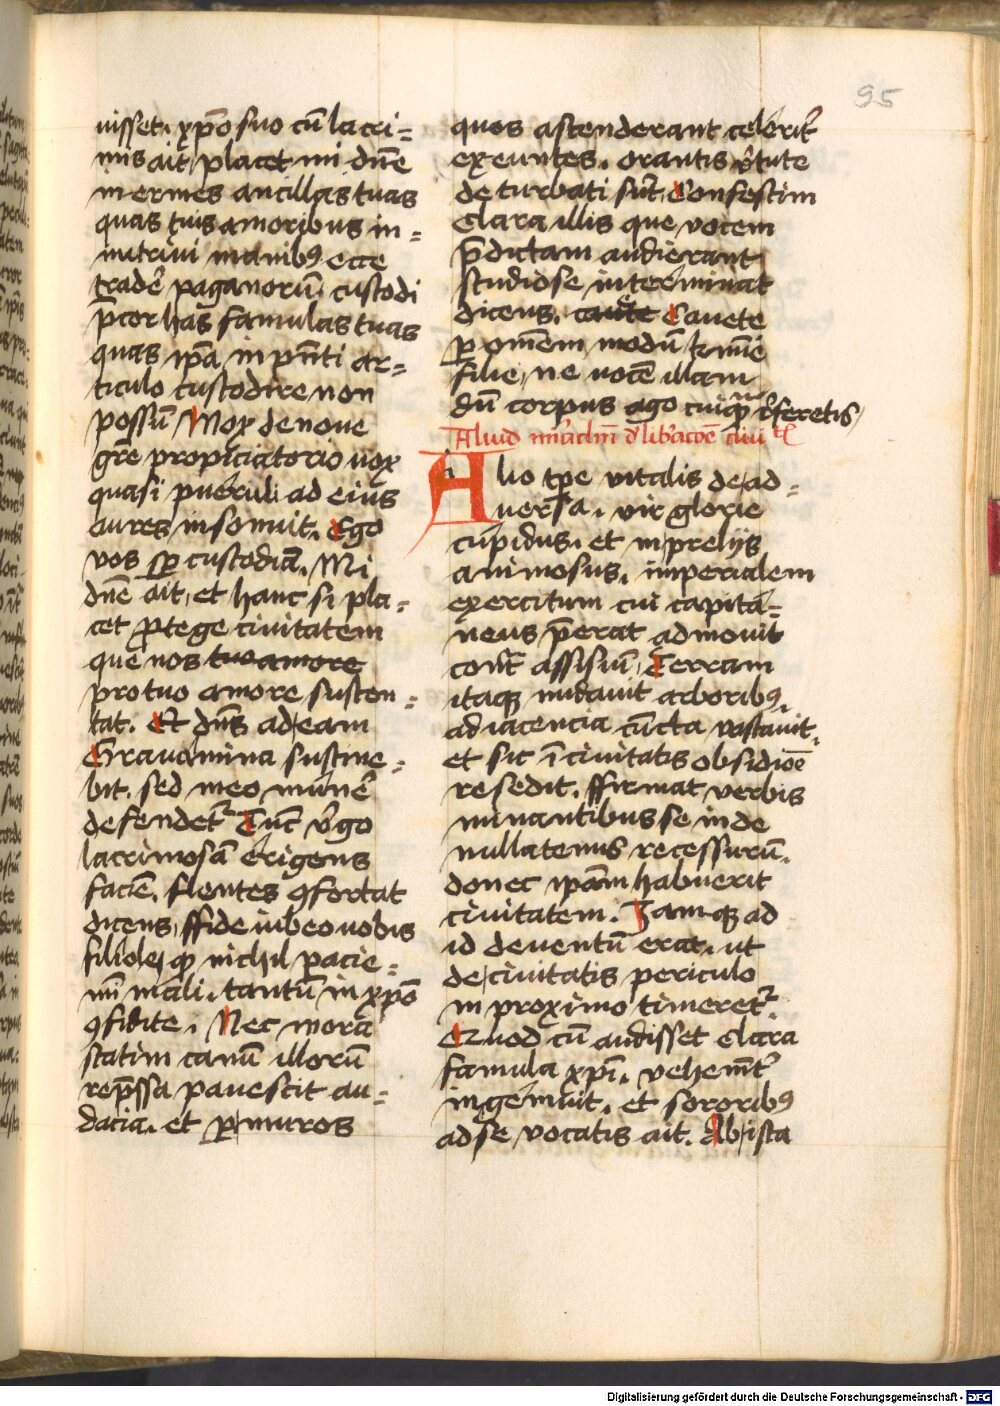 95
uisset. xp̄o suo cū lacri=
mis ait placet mi dn̄e
inermes ancillas tuas
quas tuis amoribus in=
nutriui manibꝰ ecce
trader̄ paganorū custodi
p̄cor has famulas tuas
quas ip̄a in pn̄ti ar=
ticulo custodire non
possū Mox de noue
gr̄e propiciatorio uox
quasi pueruli ad eius
aures insonuit. Ego
vos sp̄ custodiā. Mi
dn̄e ait et hanc si pla=
cet ꝓtege ciuitatem
que nos tuo amore
pro tuo amore susten=
tat. Et dn̄s ad eam
Grauamina sustine=
bit. sed meo muner̄
defendet᷑ Tūc v̄go
lacrimosā erigens
faciē. flentes ꝯfortat
dicens, ffide iubeo uobis
filiole qꝫ nichil pacie=
mī mali. tantū in xp̄o
ꝯfidite. Nec mora
statim canū illorū
rep̄ssa pauescit au=
dacia. et ꝑ muros
quos ascenderant celerit᷑
exeuntes. orantis v̄tute
deturbati sūt Confestim
Clara illis que vocem
p̄dictam audierant
studiose interminat᷑
dicens. caute Cauete
ꝑ om̄em modū kr̄me
filie, ne uocē illam
dū corpus ago cuiqꝫ r̄feretis
Aliud mir̄aclm̄ d̓ lib̓acōe ciui t̄t̄
Alio tp̄e vitalis de ad=
uersa. vir glorie
cupidus. et in prelijs
animosus. imperialem
exercitum cui capita=
neus p̄erat admouit
cont᷑ assisiū, Terram
itaqꝫ nudauit arboribꝰ.
adiacencia cūcta vastauit.
et sic ī ciuitatis obsidiōe
resedit. ffirmat verbis
minantibus se inde
nullatenus recessurū.
donec ip̄am habuerit
ciuitatem. Jamqꝫ ad
id deuentū erat. ut
de ciuitatis periculo
in proximo timeret᷑.
Quod cū audisset Clara
famula xp̄i. vehemēt᷑
ingemuit. et sororibꝰ
ad se vocatis ait. Ab ista
Digitalisierung gefördert durch die Deutsche Forschungsgemeinschaft - DFG